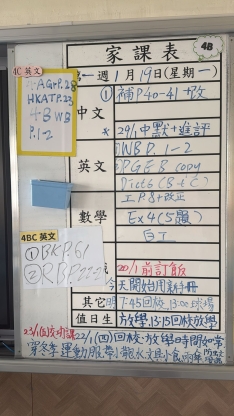 家課表
4B
第一週1月19日(星期一)
4C 英文
AGrP.28
HKATP.23
4BWB
P.1-2
中文
① 補P40-41+改
* 29/1中默+進評
英文
WBP.1-2
PGEB copy
Dict6 (B+C)
工P.8+改正
數學
Ex4(5題)
4BC 英文
① BKP.61
② RBP.22-23
20/1前訂飯
今天開始用新特冊
其它
明7:45回校,13:00球場
值日生
放學,13:15回校放學
22/1(四)回校,放學時間如常
穿冬季運動服,帶